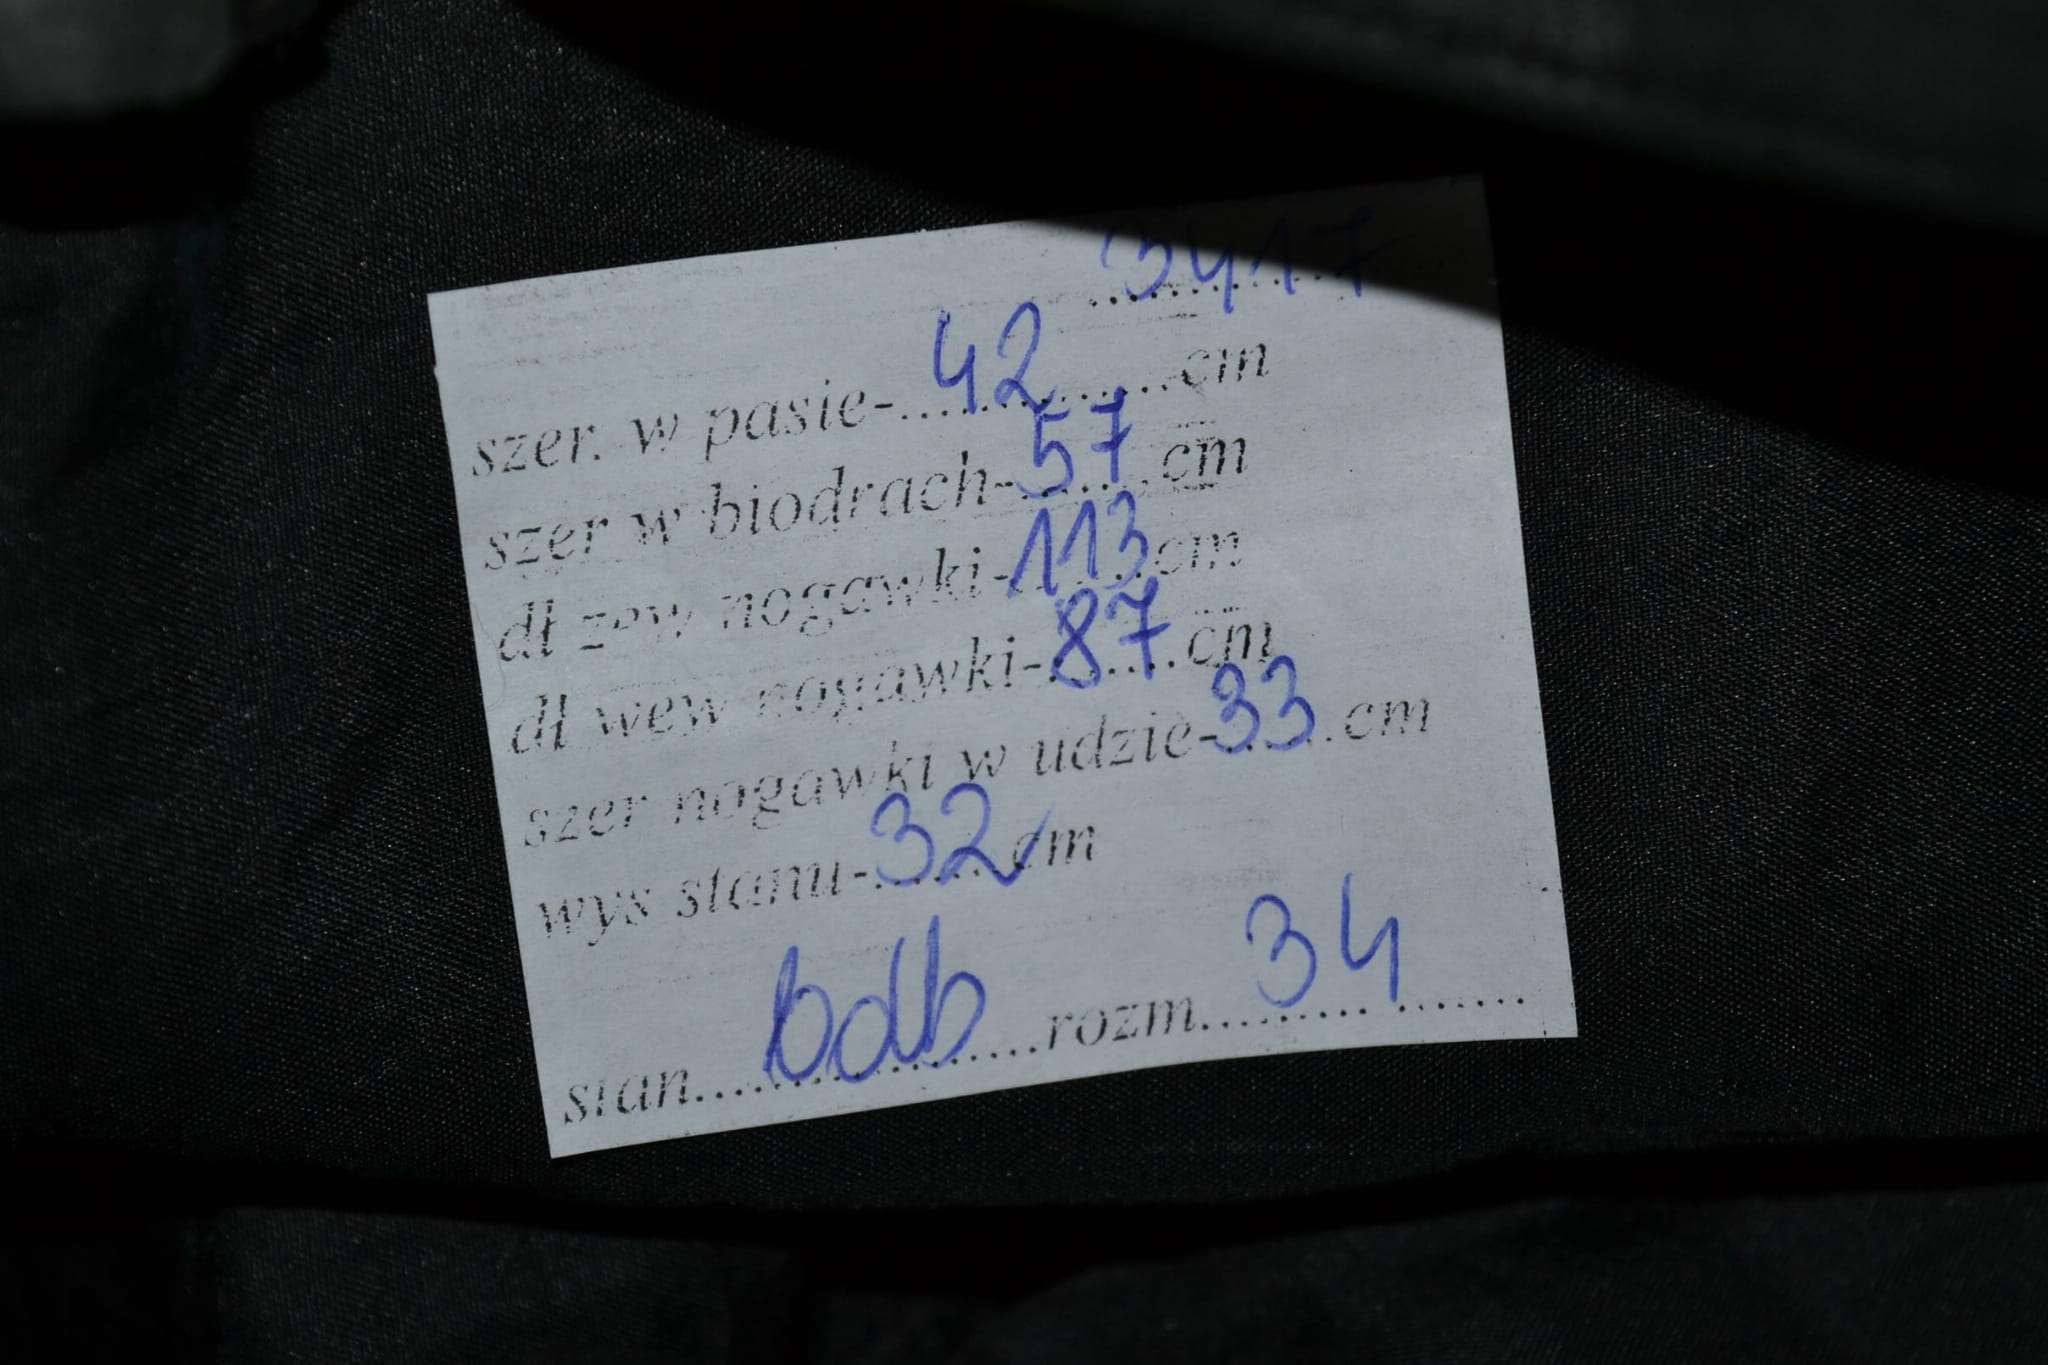 3417
szer. w pasie-42cm
szer w biodrach-57cm
dł zew nogawki-113cm
dł wew nogawki-87cm
szer nogawki w udzie-33cm
wys stanu-32cm
stan bdb rozm 34